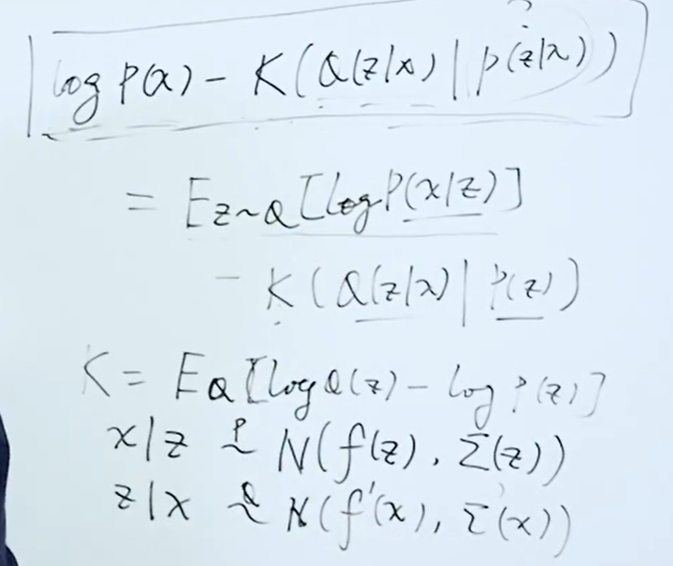 log P(x) - K(Q(z|x) | p(z|x))
= E_{z~Q}[log P(x|z)]
- K(Q(z|x) | P(z))
K = E_Q[log Q(z) - log P(z)]
x|z ~^P N(f(z), Σ(z))
z|x ~^Q N(f'(x), Σ'(x))